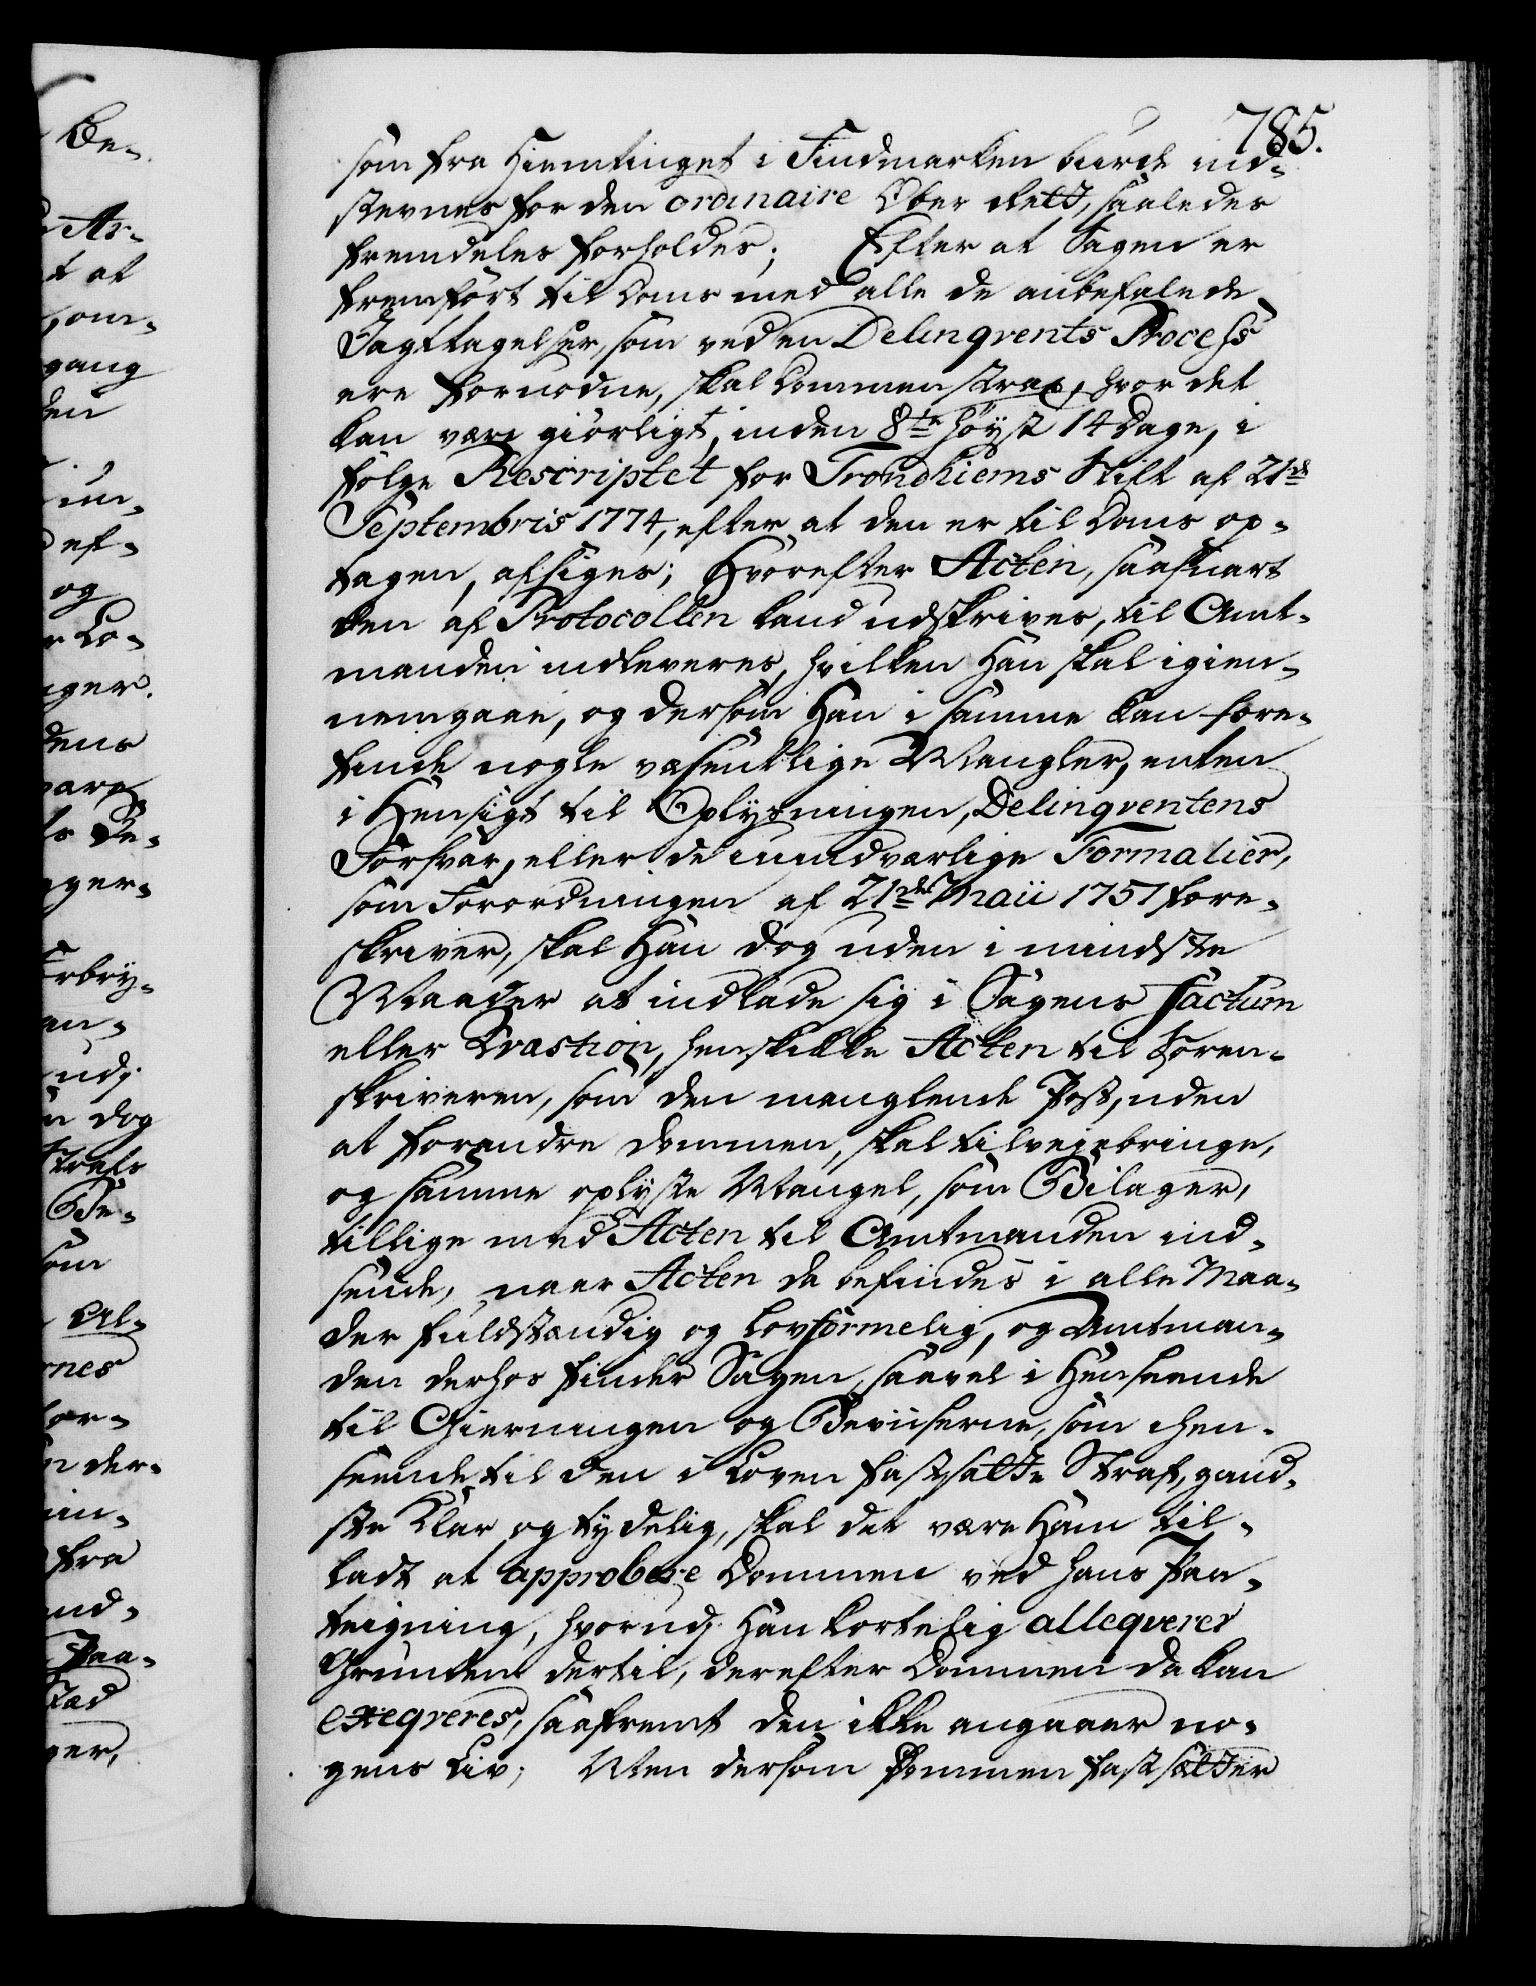 785.
som fra Hiemtinget i Findmarken burde ind-
stevnes for den ordinaire Ober Rett, saaledes
fremdeles forholdes; Efter at Sagen er
fremført til Doms med alle de anbefalede
Jagttagelser, som ved en Delinqvents Process
ere fornødne, skal Dommen strax, hvor det
kan være giørligt, inden 8te høyst 14 Dage, i
følge Rescriptet for Trondhiems Stift af 21de
Septembris 1774, efter at den er til Doms op-
tagen, afsiges; Hvorefter Acten, saasnart
den af Protocollen kand udskrives, til Amt-
manden indleveres, hvilken Han skal igien-
nemgaae, og dersom Han i samme kan fore-
finde nogle væsentlige Mangler, enten
i Hensigt til Oplysningen, Delinqventens
Forsvar, eller de uundværlige Formalier,
som Forordningen af 21de Maii 1751 fore-
skriver, skal Han dog uden i mindste
Maader at indlade sig i Sagens Factum
eller Qvæstion, henskikke Acten til Soren-
skriveren, som den manglende Post, uden
at forandre Dommen, skal tilvejebringe,
og samme oplyste Mangel, som Bilager,
tillige med Acten til Amtmanden ind-
sende, naar Acten da befindes i alle Maa-
der fuldstændig og lovformelig, og Amtman-
den derhos finder Sagen, saavel i Henseende
til Gierningen og Beviiserne, som i hen-
seende til den i Loven fastsatte Straf, gand-
ske klar og tydelig, skal det være Ham til-
ladt at approbere Dommen ved hans Paa-
teigning, hvorudj Han kortelig allegverer
Grunden dertil, derefter Dommen da kan
exeqveres, saafremt den ikke angaaer no-
gens Liv; Men dersom Dommen fastsætter